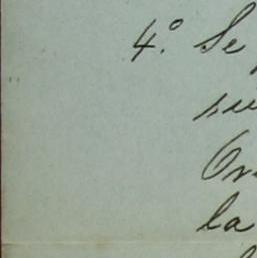 4.° Se
su
On
la